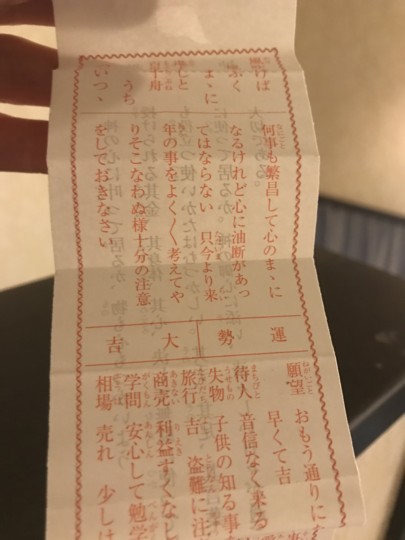 けば
ふく
まゝに
しと
舟
うち
いつゝ
何事も繁昌して心のまゝに
なるけれど心に油断があっ
てはならない 只今より来
年の事をよく〱考えてや
りそこなわぬ様十分の注意
をしておきなさい
運勢 大吉
願望 おもう通りに
早くて吉
待人 音信なく来る
失物 子供の知る事
旅行 吉 盗難に注
商売 利益すくなし
学問 安心して勉学
相場 売れ 少しは